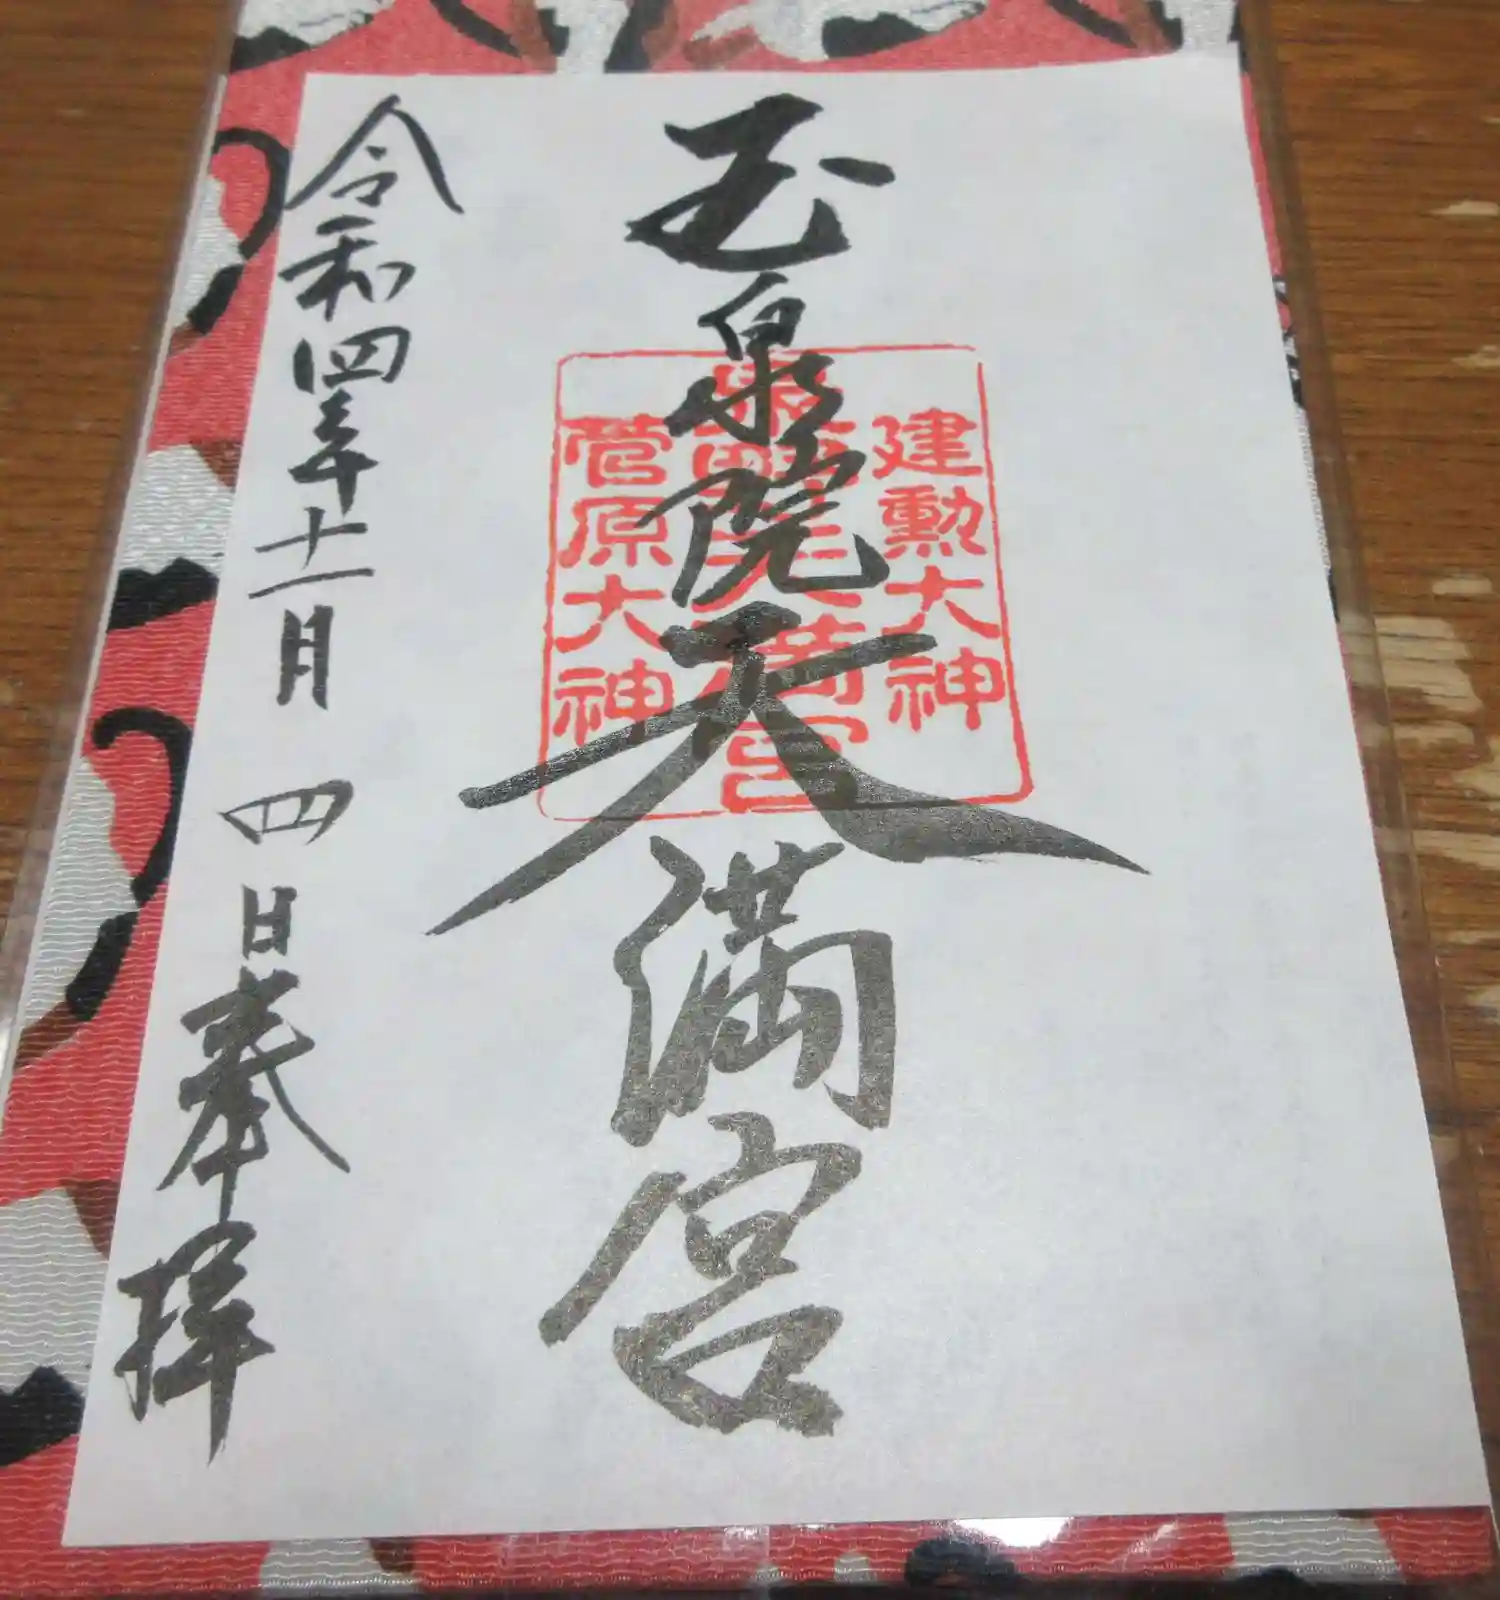 建勲大神
菅原大神
玉泉院天満宮
令和四年十一月四日奉拝